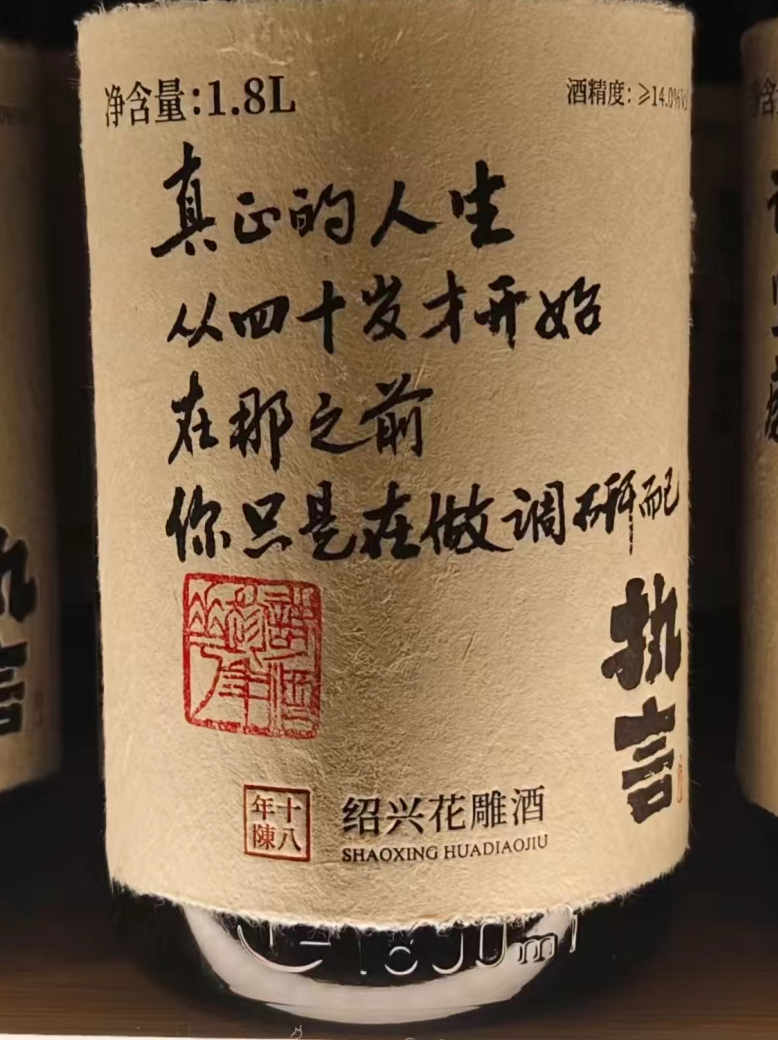 净含量:1.8L
酒精度:≥14.0%Vol
真正的人生
从四十岁才开始
在那之前
你只是在做调研而已
诗酒趁年华
执言
十八年陳
绍兴花雕酒
SHAOXING HUADIAOJIU
1800ml